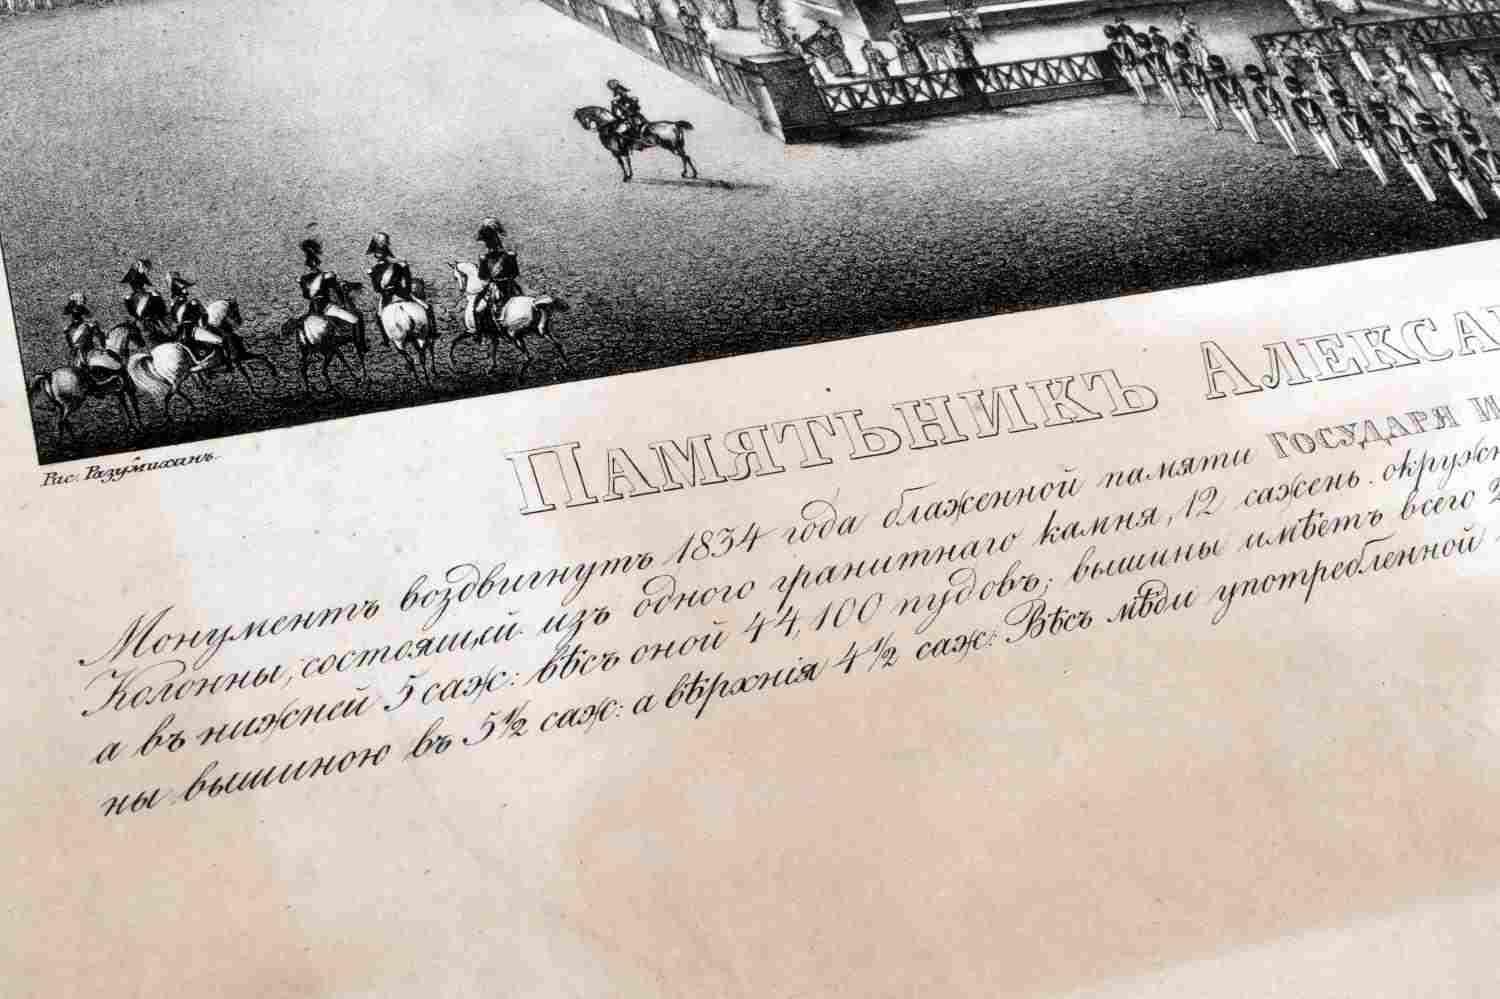 Рис: Разумихинъ.
ПАМЯТЬНИКЪ АЛЕКСА
Монументъ воздвигнутъ 1834 года блаженной памяти ГОСУДАРЯ И
Колонны, состоящей изъ одного гранитнаго камня, 12 сажень. окружн
а въ нижней 5 саж: вѣсъ оной 44,100 пудовъ; вышины имѣетъ всего 2
ны вышиною въ 5 1/2 саж: а вѣрхнія 4 1/2 саж: Вѣсъ мѣди употребленной